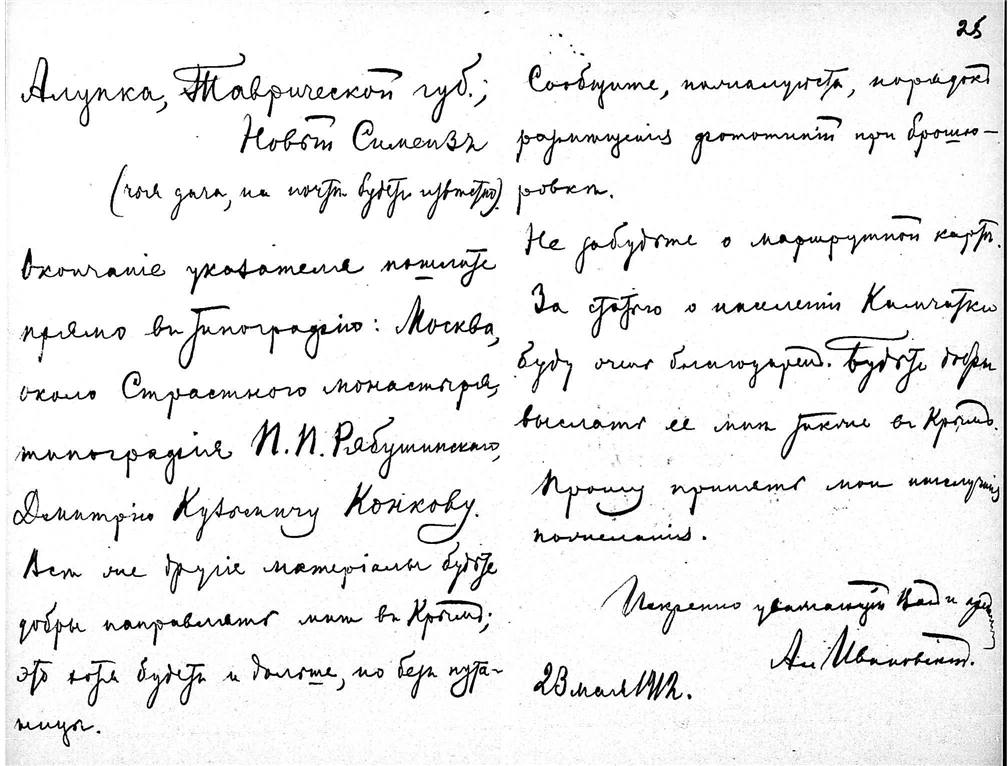 25
Алупка, Таврической губ.;
Новый Симеизъ
(чья дача, на почтѣ будетъ извѣстно).
Окончаніе указателя пошлите
прямо въ типографію: Москва,
около Страстного монастыря,
типографія П. П. Рябушинскаго,
Дмитрію Кузьмичу Конкову.
Всѣ же другіе матеріалы будьте
добры направлять мнѣ въ Крымъ;
это хотя будетъ и дольше, но безъ пута-
ницы.
Сообщите, пожалуйста, порядокъ
размѣщенія фототипій при брошю-
ровкѣ.
Не забудьте о маршрутной картѣ.
За статью о населеніи Камчатки
буду очень благодаренъ. Будьте добры
выслать ее мнѣ также въ Крымъ.
Прошу принять мои наилучшія
пожеланія.
Искренно уважающій Васъ и
Ал Ивановскій.
23 мая 1912.